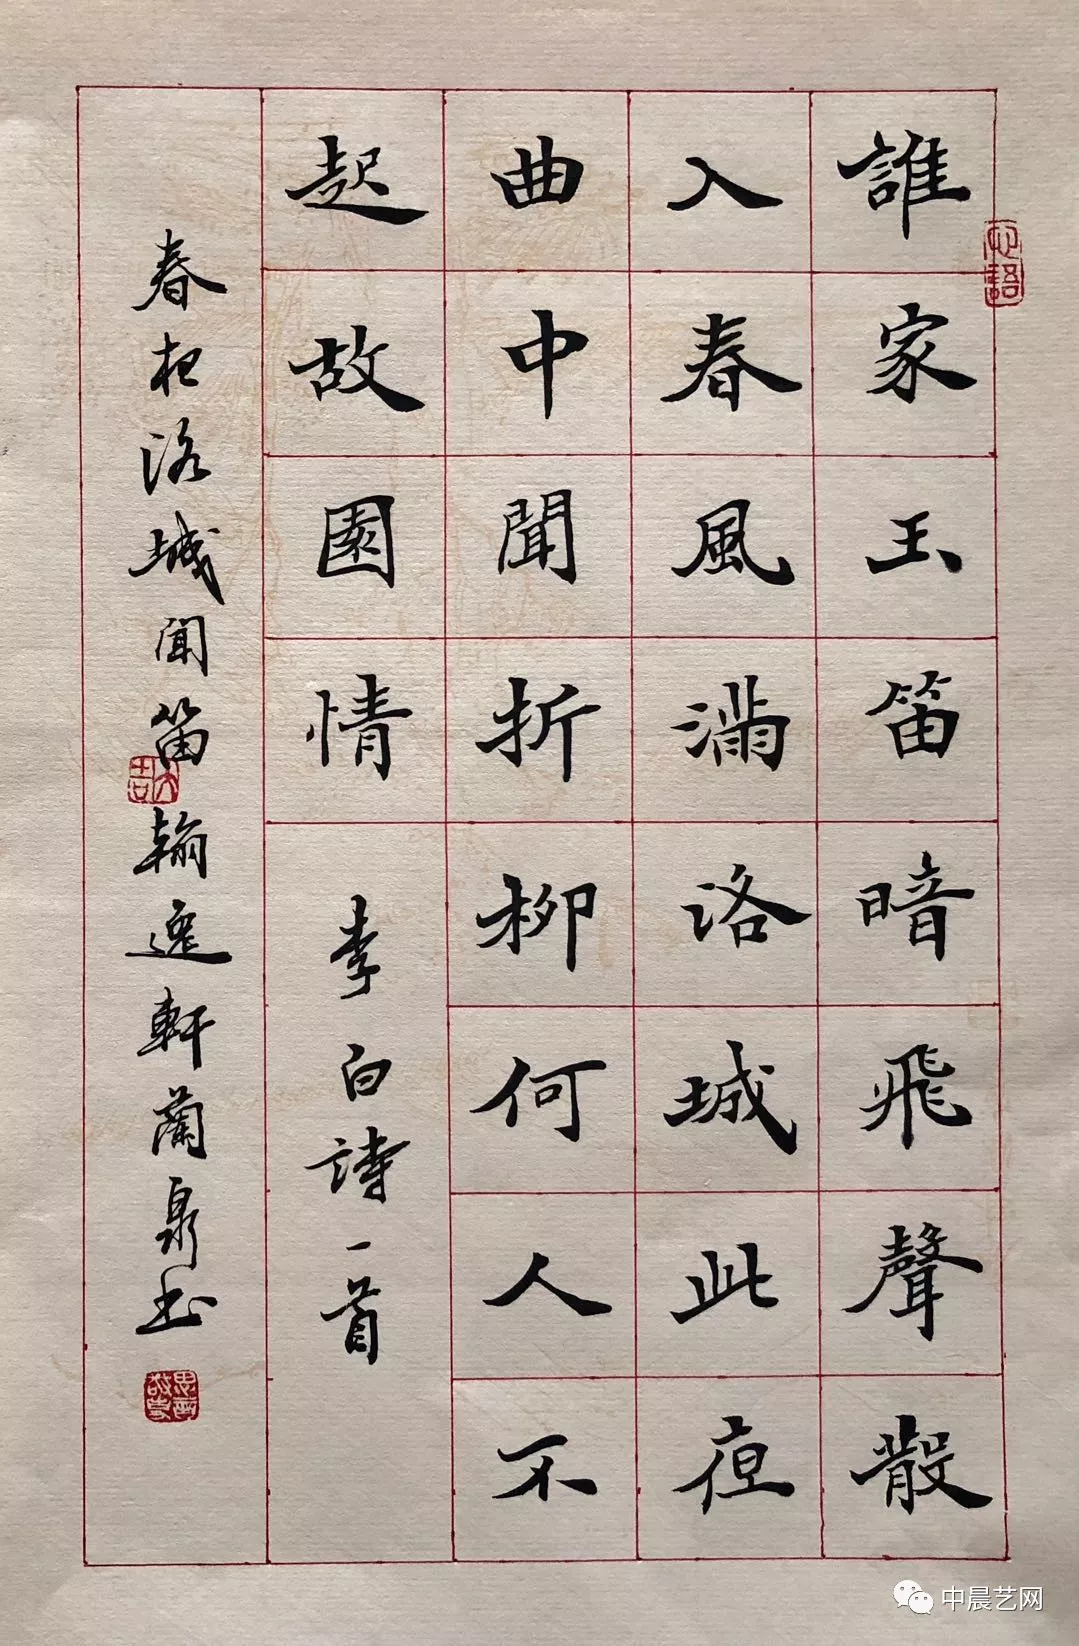 誰家玉笛暗飛聲散
入春風滿洛城此夜
曲中聞折柳何人不
起故園情
李白詩一首
春夜洛城聞笛翰逸軒蘭泉书
心語
大吉
中晨艺网